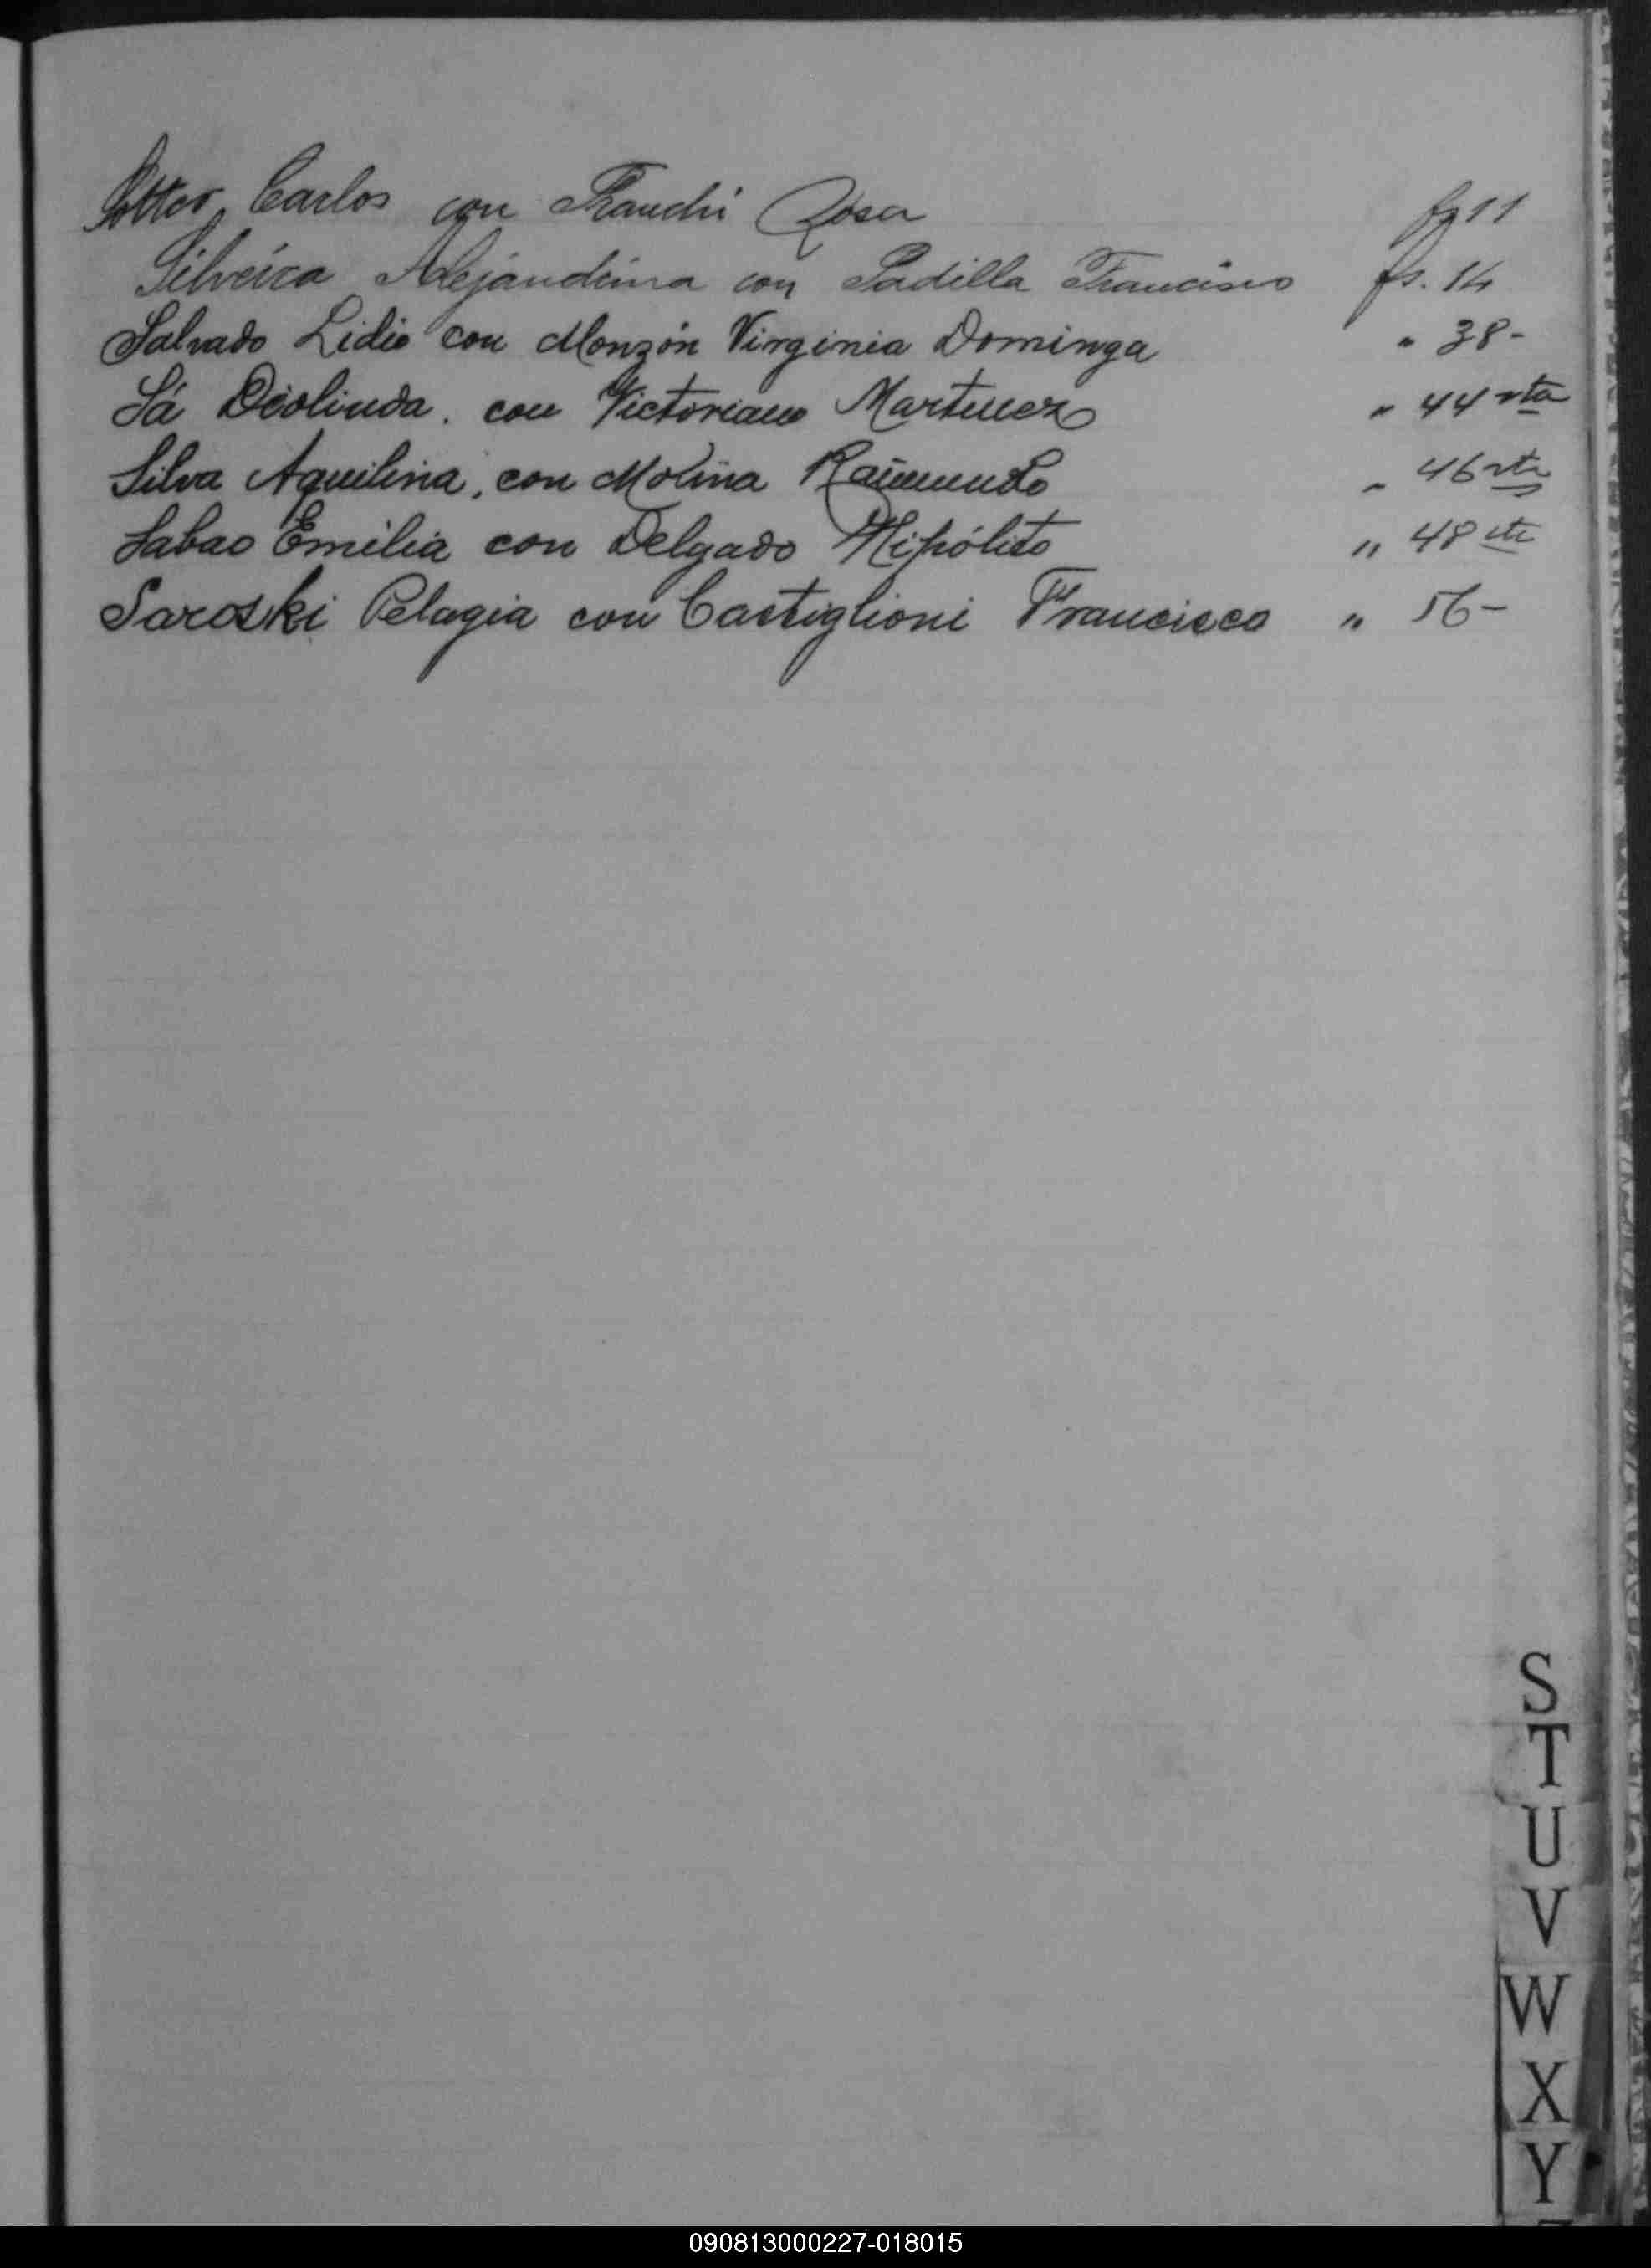 Carlos con Franchi Rosa fs 11
Silveira Alejandrina con Padilla Francisco fs. 14
Salvado Lidio con Monzón Virginia Dominga " 38-
Sá Diolinda. con Victoriano Martinez " 44 vta
Silva Aquilina, con Molina Raimundo " 46 vta
Sabao Emilia con Delgado Hipólito " 48 vta
Saroski Pelagia con Castiglioni Francisco " 56-
S
T
U
V
W
X
Y
090813000227-018015